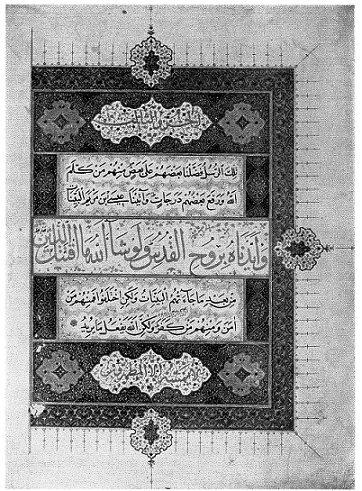 تلك الرسل فضلنا بعضهم على بعض منهم من كلم
الله ورفع بعضهم درجات وآتينا عيسى بن مريم البينات
وايدناه بروح القدس ولو شاء الله ما اقتتل الذين
من بعد ما جاءتهم البينات ولكن اختلفوا فمنهم من
امن ومنهم من كفر ولكن الله يفعل ما يريد